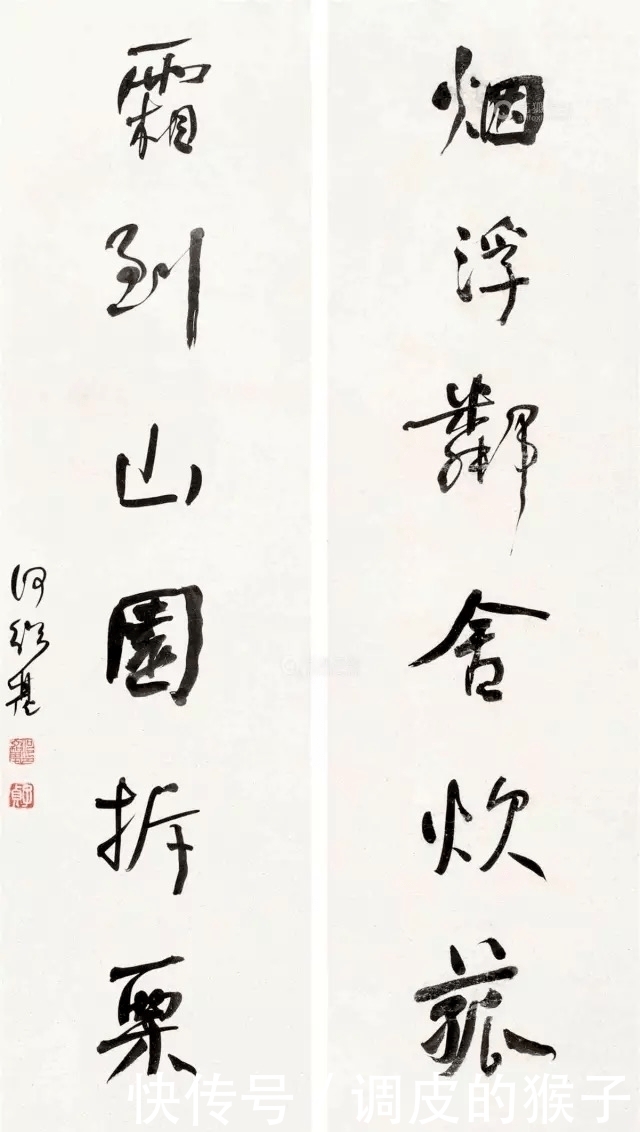 烟浮鄰舍炊菰
霜到山園拆栗
何紹基
子貞
快传号/调皮的猴子